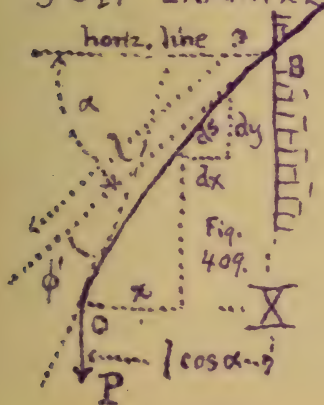 horiz. line
B
α
l
ds
dy
dx
Fig.
409.
φ'
x
O
l cos α
P